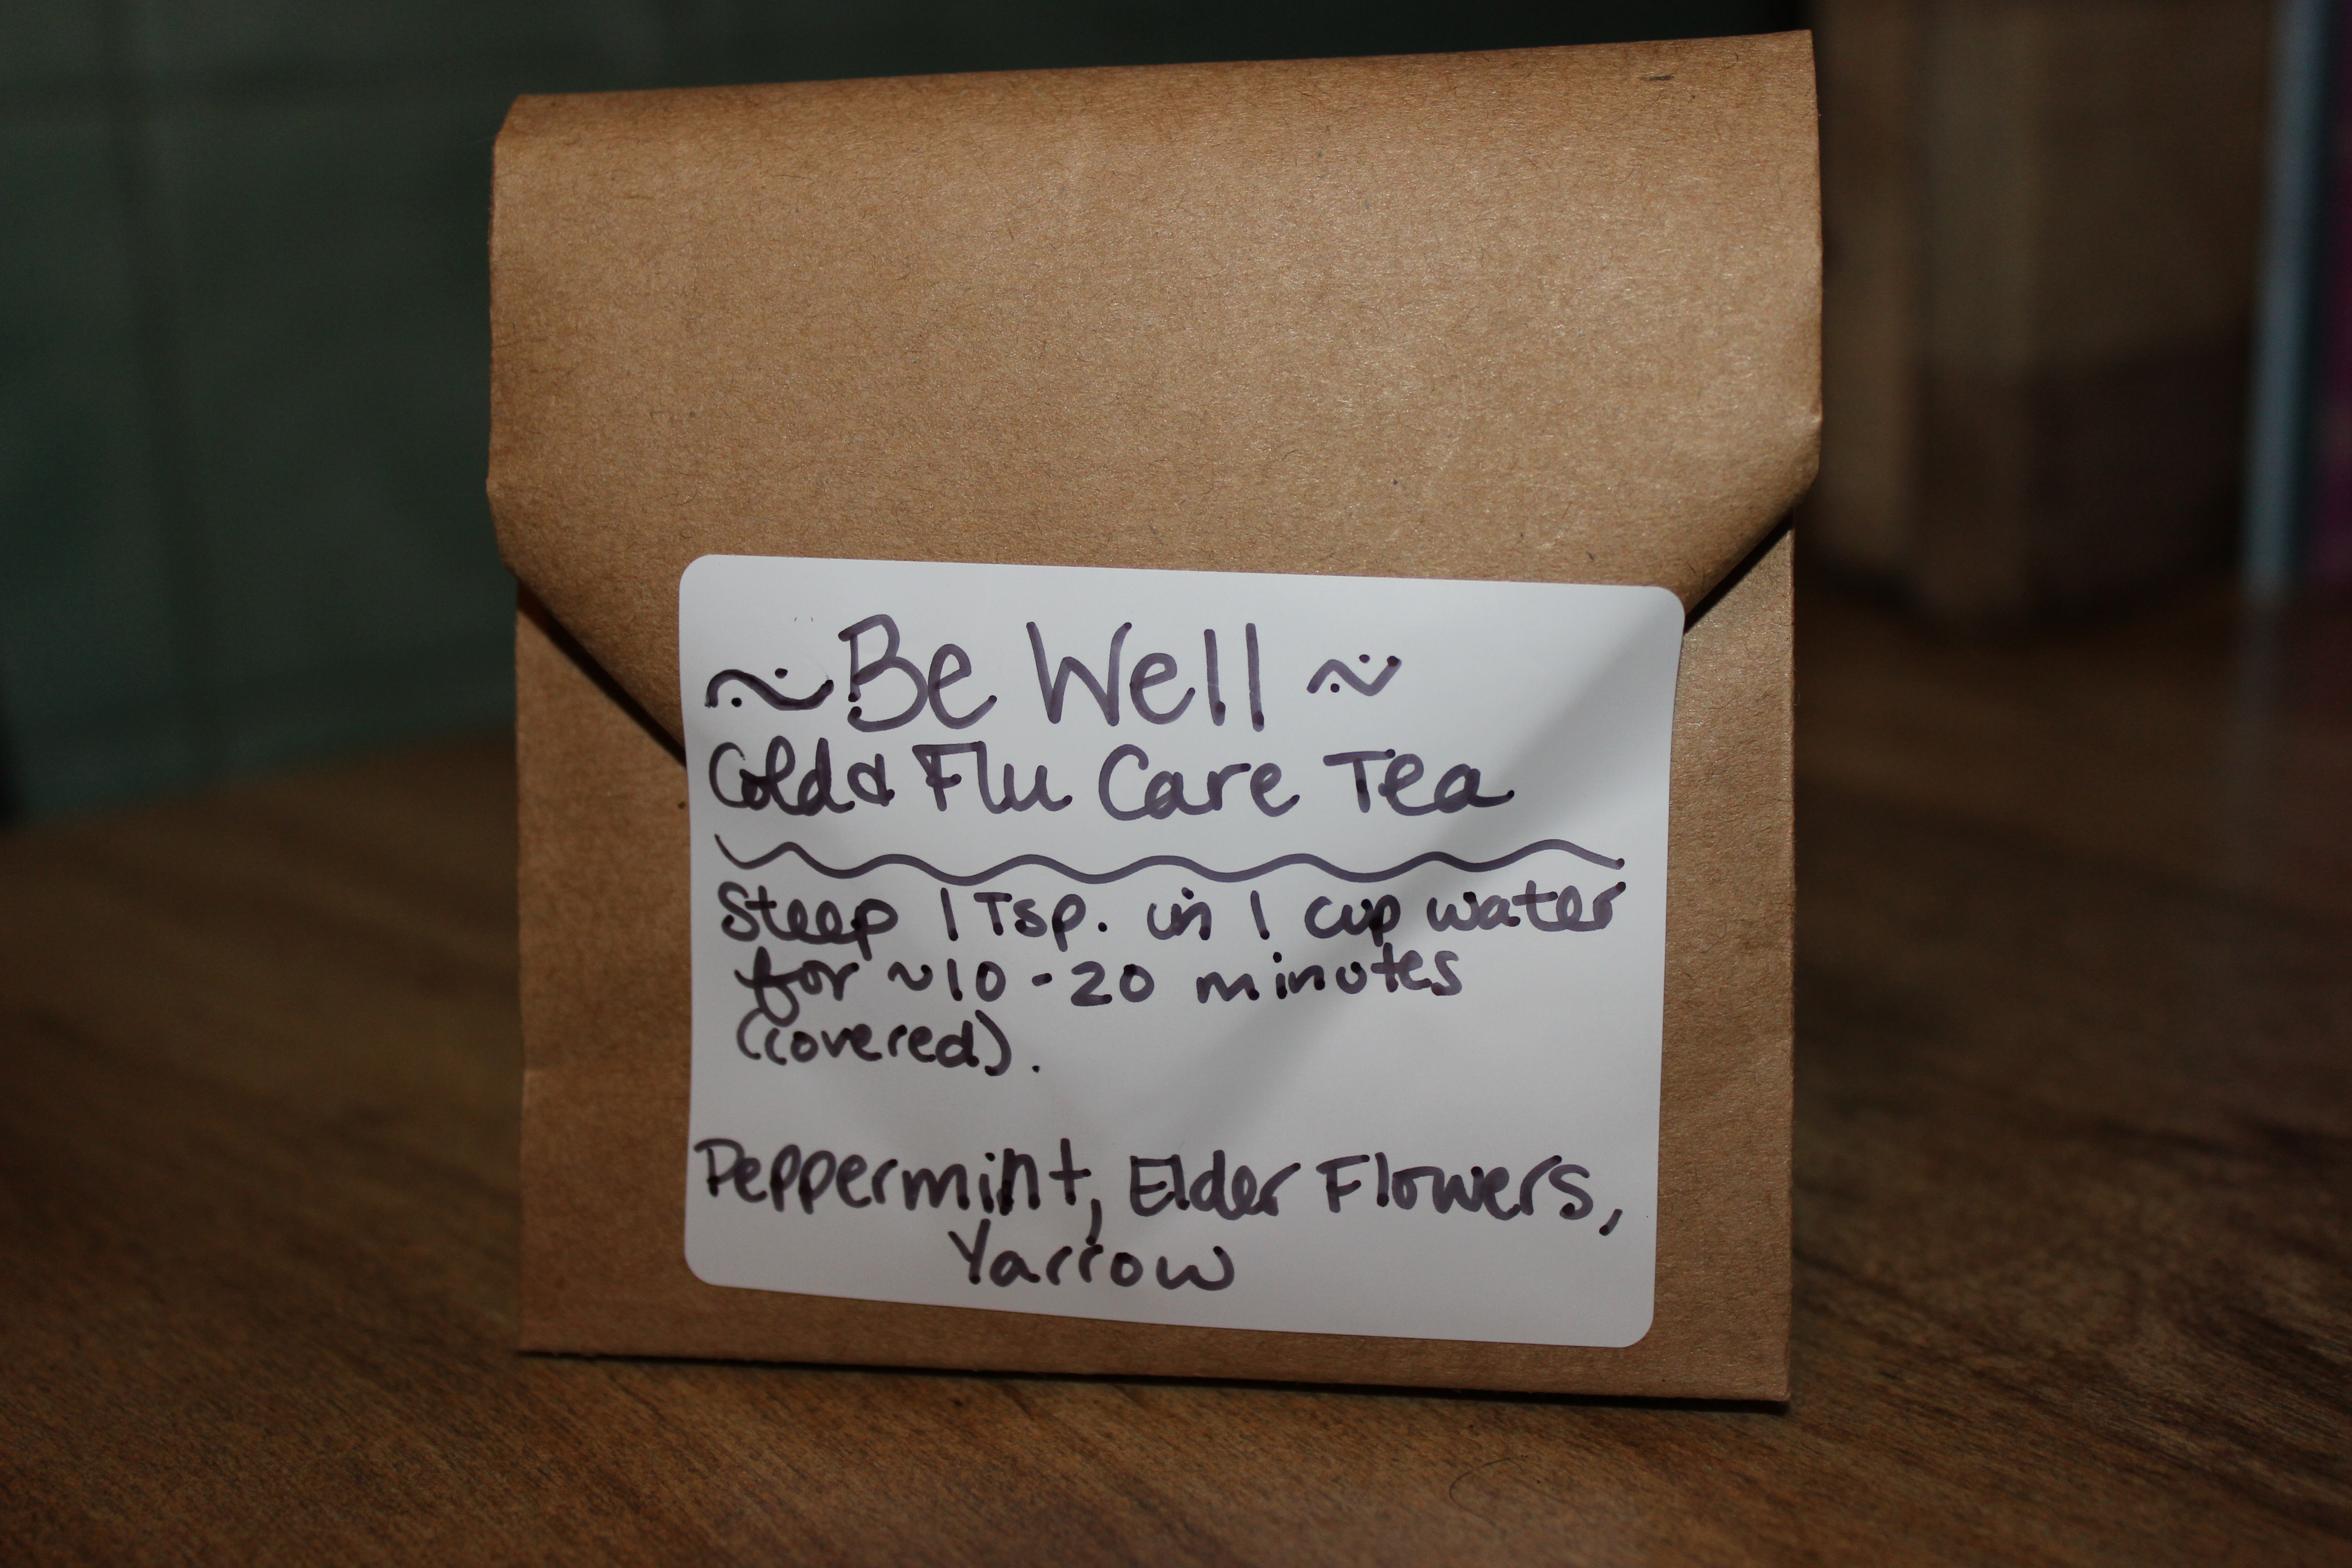 ~Be Well~
Cold & Flu Care Tea
Steep 1 Tsp. in 1 cup water
for ~10-20 minutes
(covered).
Peppermint, Elder Flowers,
Yarrow